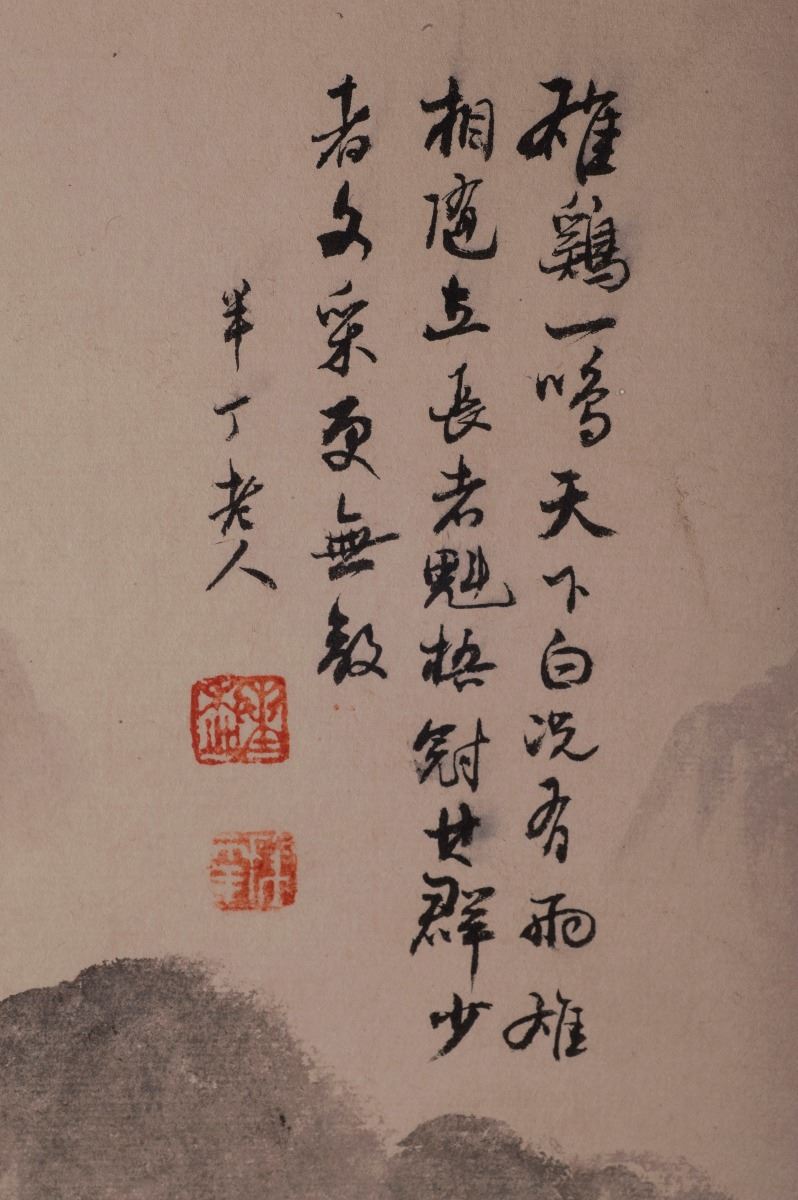 雄鷄一鳴天下白况有兩雄
相隨立長者魁梧冠其群少
者文采更無敵
半丁老人